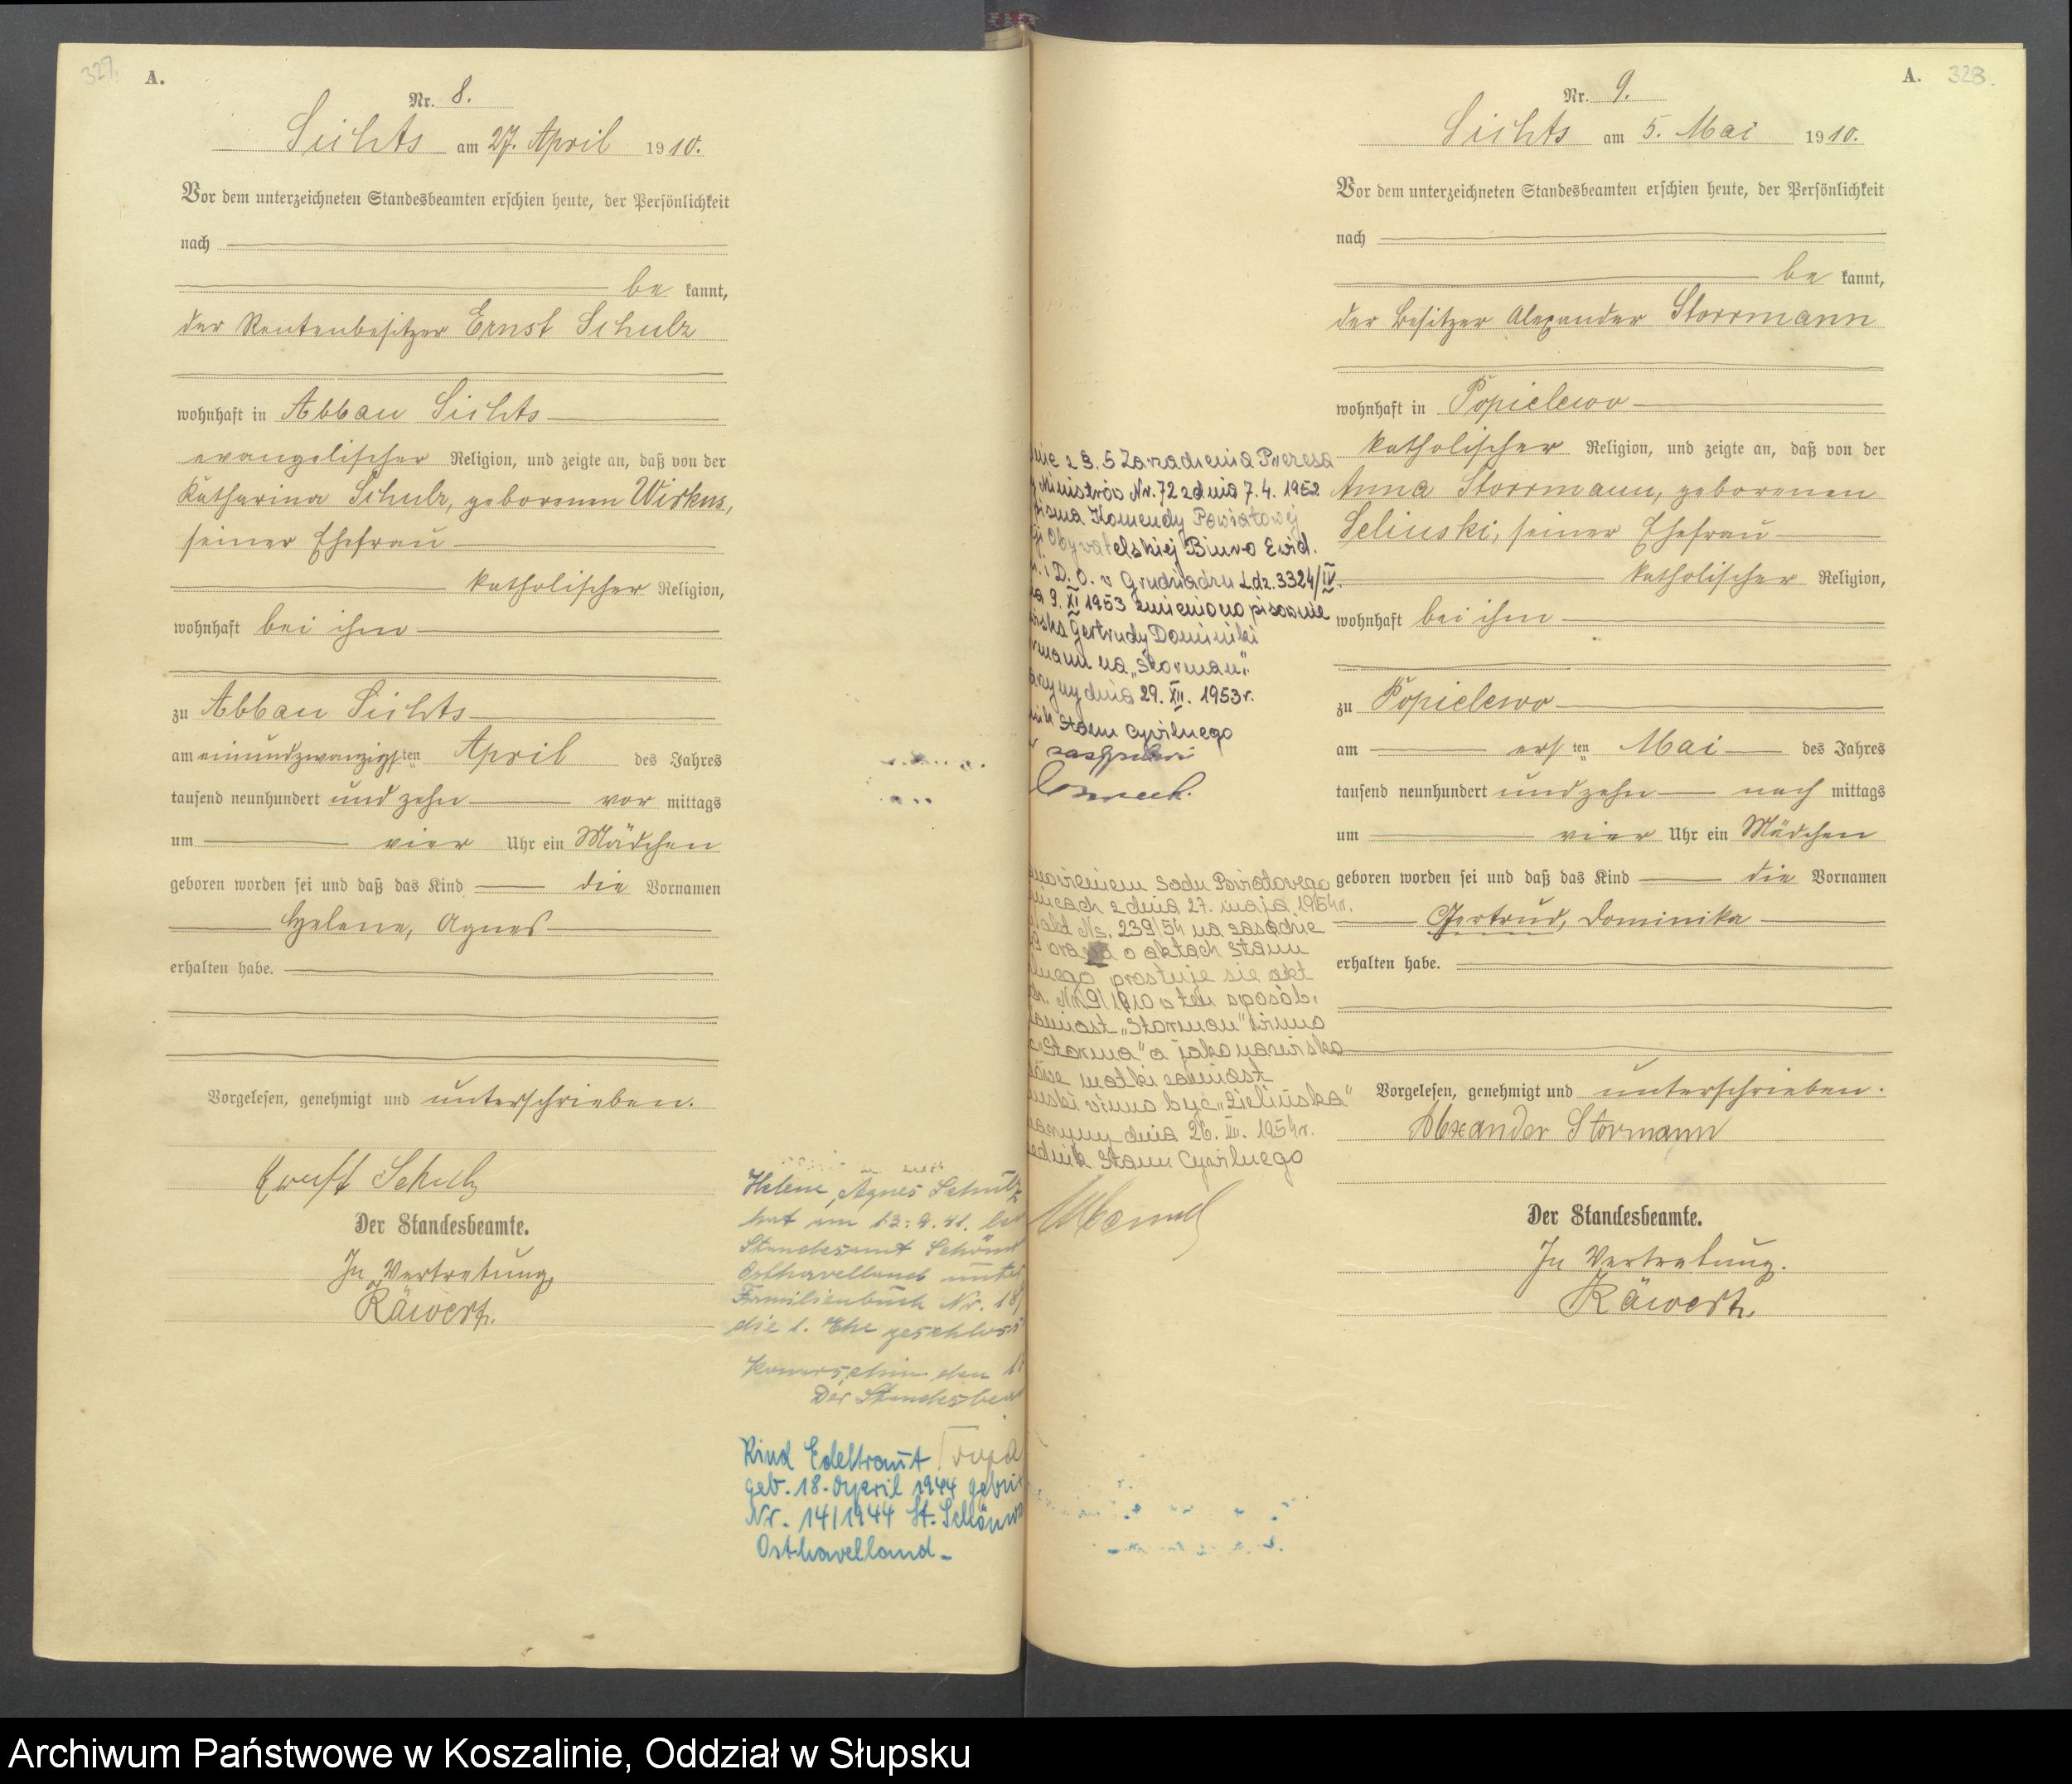 327.
A.
Nr. 8.
Sichts am 27. April 1910.
Vor dem unterzeichneten Standesbeamten erschien heute, der Persönlichkeit
nach
be kannt,
der Rentenbesitzer Ernst Schulz
wohnhaft in Abbau Sichts
evangelischer Religion, und zeigte an, daß von der
Katharina Schulz, geborenen Wirkus,
seiner Ehefrau
katholischer Religion,
wohnhaft bei ihm
zu Abbau Sichts
am einundzwanzigsten April des Jahres
tausend neunhundert und zehn vor mittags
um vier Uhr ein Mädchen
geboren worden sei und daß das Kind die Vornamen
Helene, Agnes
erhalten habe.
Vorgelesen, genehmigt und unterschrieben.
Ernst Schulz
Der Standesbeamte.
In Vertretung
Räwert.
Helene, Agnes Schulz
hat am 13.9.41.
Standesamt
Osthavelland unter
Familienbuch Nr. 18
die 1. Ehe geschlos
den
Der Standesbea
Kind Edeltraut
geb. 18. April 1944
Nr. 14/1944 St. Schönw
Osthavelland
A. 328.
Nr. 9.
Sichts am 5. Mai 1910.
Vor dem unterzeichneten Standesbeamten erschien heute, der Persönlichkeit
nach
be kannt,
der Besitzer Alexander Storrmann
wohnhaft in Popielewo
katholischer Religion, und zeigte an, daß von der
Anna Storrmann, geborenen
Selinski, seiner Ehefrau
katholischer Religion,
wohnhaft bei ihm
zu Popielewo
am ersten Mai des Jahres
tausend neunhundert und zehn nach mittags
um vier Uhr ein Mädchen
geboren worden sei und daß das Kind die Vornamen
Gertrud, Dominika
erhalten habe.
Vorgelesen, genehmigt und unterschrieben.
Alexander Stormann
Der Standesbeamte.
In Vertretung.
Räwert.
nie z §. 5 Zarządzenia Prezesa
Ministrów Nr. 72 z dnia 7.4.1952
pisma Komendy Powiatowej
Obywatelskiej Biuro Ewid.
i D. O. w Grudziądzu Ldz. 3324/IV
9. XI 1953 zmieniono pisownię
Gertrudy Dominiki
rmann na „Storman".
dnia 29. XII. 1953 r.
Stanu Cywilnego
nowieniem Sądu Powiatowego
nicach z dnia 27. maja 1954 r.
akt Ns. 239/54 na zasadzie
prawa o aktach stanu
lnego prostuje się akt
Nr. 9/1910 w ten sposób,
zamiast „Storman" winno
„Storma" a jako nazwisko
matki zamiast
nski winno być „Zielińska"
dnia 26. 1954 r.
Stanu Cywilnego
Archiwum Państwowe w Koszalinie, Oddział w Słupsku